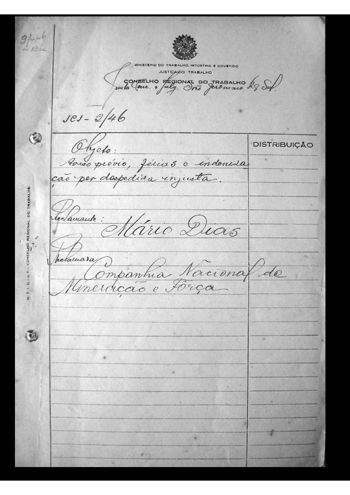 MINISTÉRIO DO TRABALHO, INDÚSTRIA E COMÉRCIO
JUSTIÇA DO TRABALHO
CONSELHO REGIONAL DO TRABALHO
Junta Conc. e Julg. São Jeronimo
JCJ - 2/46
Objeto:
DISTRIBUIÇÃO
Aviso prévio, férias e indeniza
ção por despedida injusta.
Reclamante:
Mário Dias
Reclamada:
Companhia Nacional de
Mineração e Fôrça